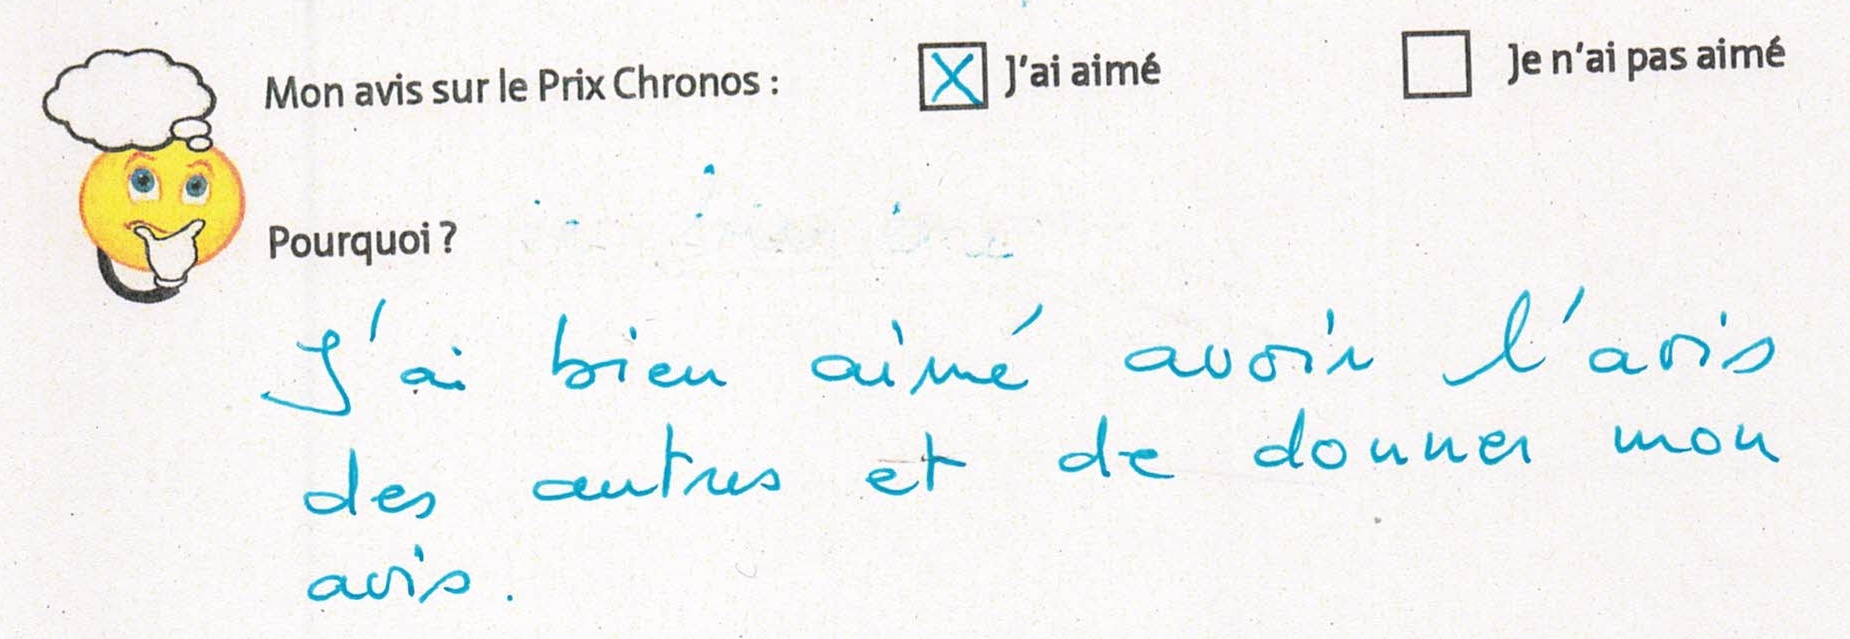 Mon avis sur le Prix Chronos : X J'ai aimé Je n'ai pas aimé
Pourquoi ?
J'ai bien aimé avoir l'avis
des autres et de donner mon
avis.